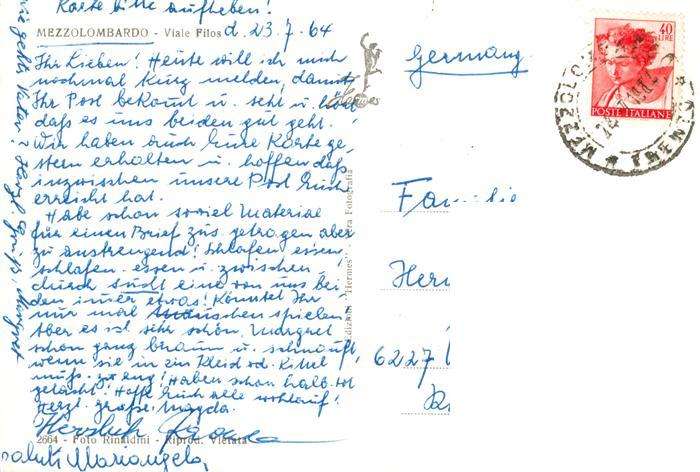 Karte bitte aufheben!
MEZZOLOMBARDO - Viale Filos d. 23.7.64
Ihr Lieben! Heute will ich mich
nochmal kurz melden, damit
Ihr Post bekomt u. seht u. hört
daß es uns beiden gut geht.
Wir haben auch Eure Karte ge-
stern erhalten u. hoffen daß
inzwischen unsere Post Euch
erreicht hat.
Habe schon soviel Material
für einen Brief zus. getragen aber
zu anstrengend! Schlafen essen
schlafen essen u. zwischen-
durch sucht eine von uns bei-
den imer etwas! Könntet Ihr
nur mal mäuschen spielen
Aber es ist sehr schön. Margret
schon ganz braun u. schnauft,
wenn sie in ein Kleid od. Kittel
muß. zu eng! Haben schon halb tot
gelacht! Hoffe Euch alle wohlauf!
Herzl. Grüße Magda.
Herzlich
saluti Mariangela
wie geht's Vater? Herzl. Grüße, Margret
2664 - Foto Rinaldini - Riprod. Vietata
Edizioni "Hermes" - Vera Fotografia
Germany
40
LIRE
POSTE ITALIANE
MEZZOLOMBARDO
TRENTO
Fa
Her
6227